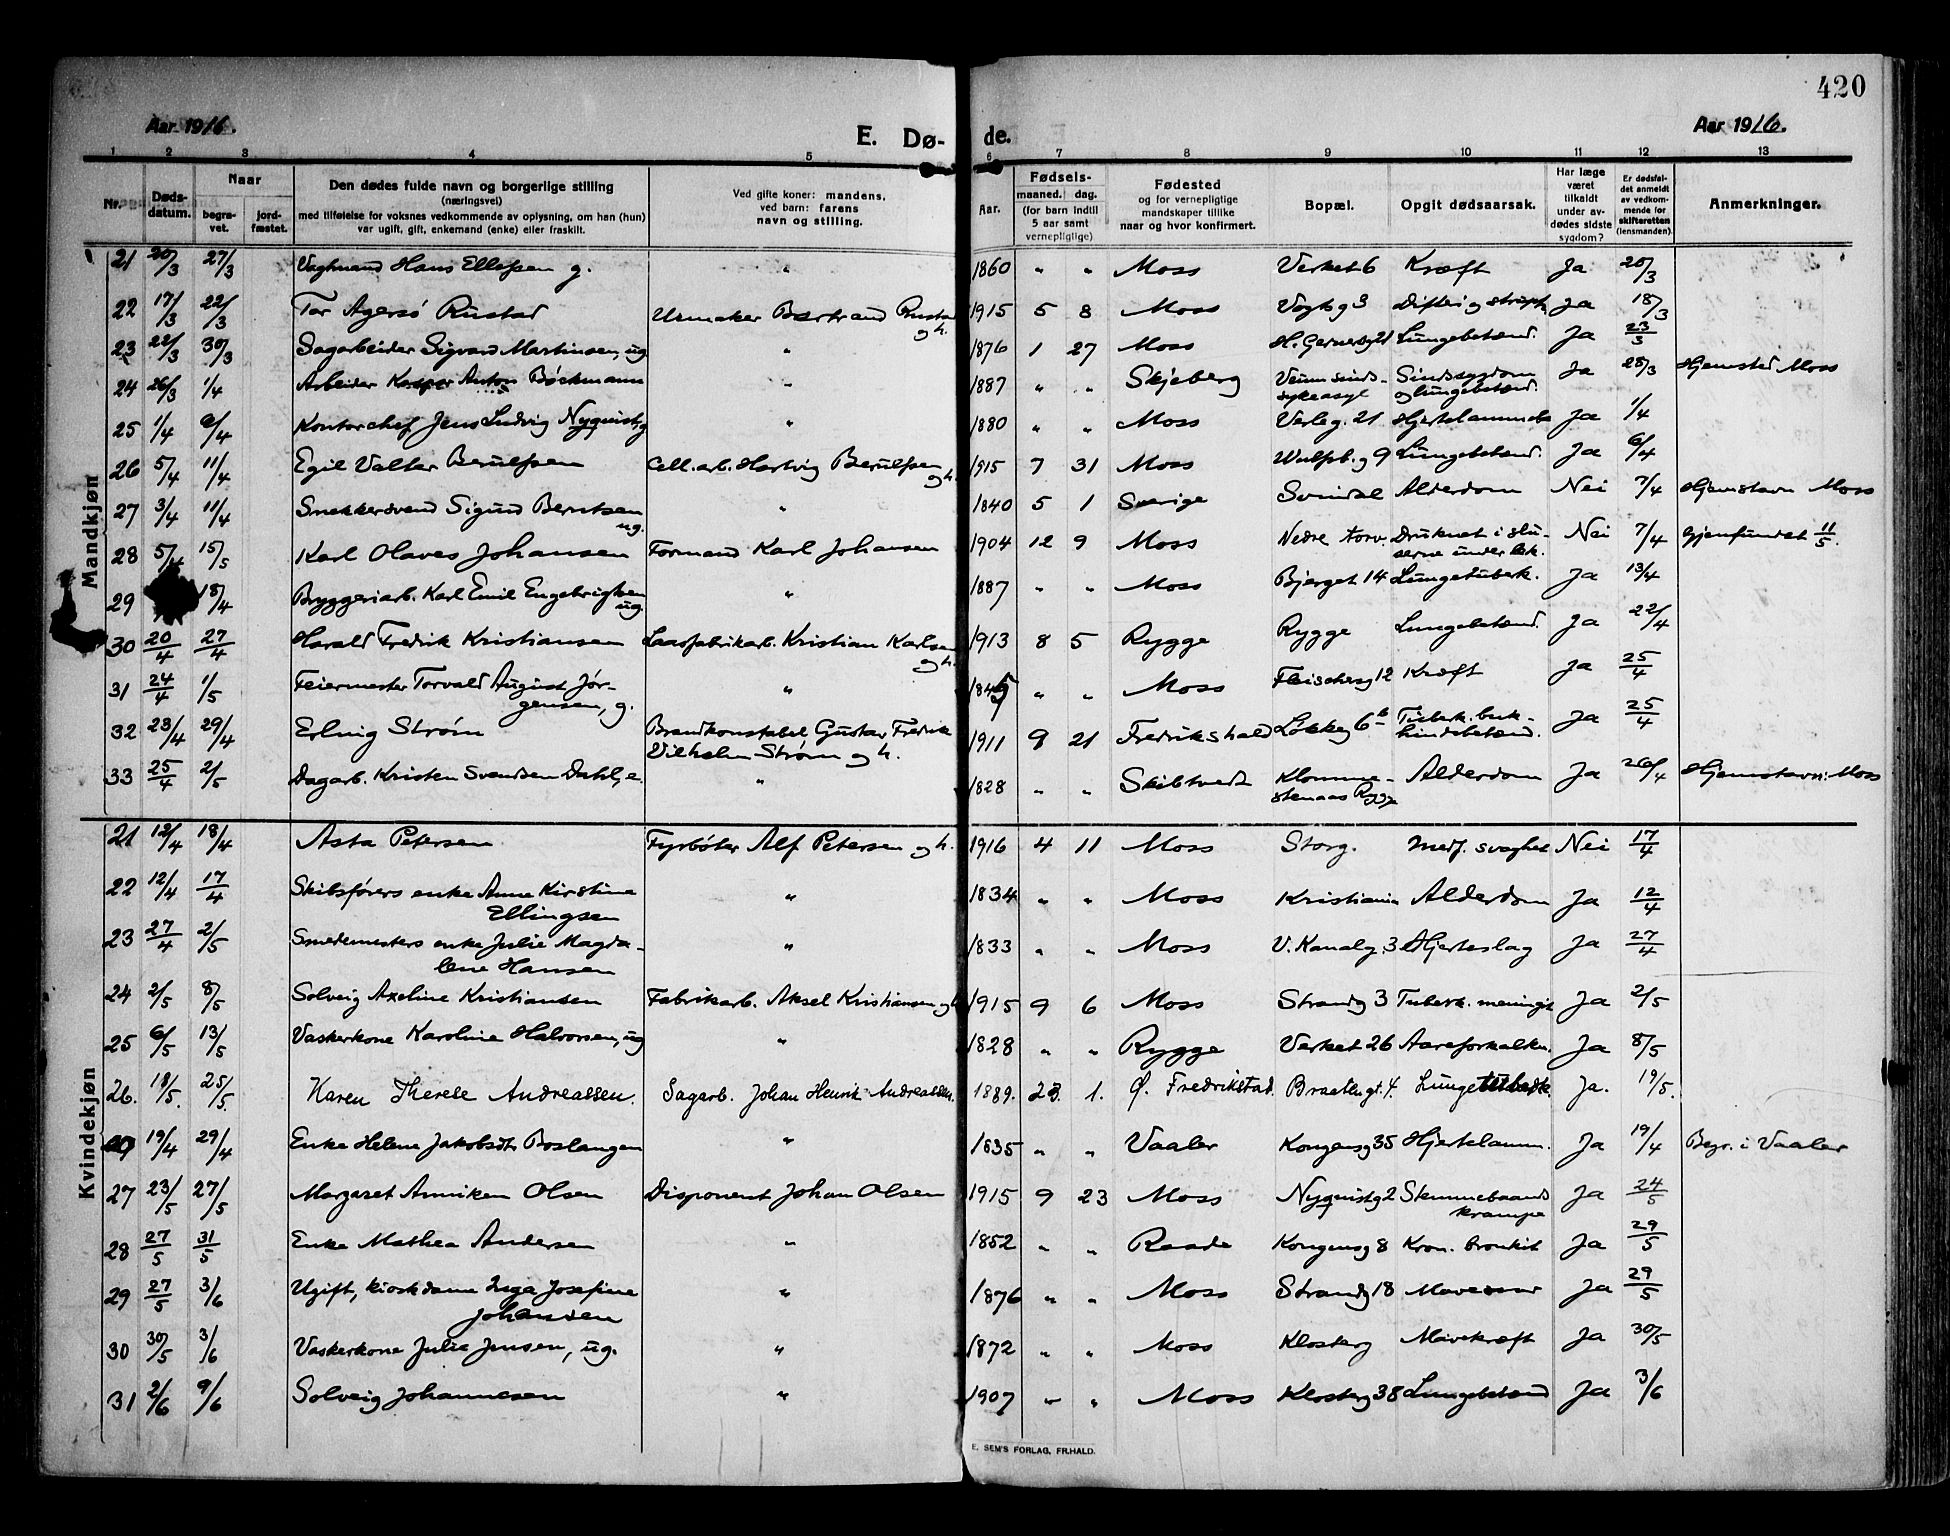 420
Aar 1916.
E. Dø-
de.
Aar 1916.
1 2 3 4 5 6 7 8 9 10 11 12 13
Nr.
Døds-
datum.
Naar
begra-
vet.
jord-
fæstet.
Den dødes fulde navn og borgerlige stilling
(næringsvei)
med tilføielse for voksnes vedkommende av oplysning, om han (hun)
var ugift, gift, enkemand (enke) eller fraskilt.
Ved gifte koner: mandens,
ved barn: farens
navn og stilling.
Aar.
Fødsels-
maaned. dag.
(for barn indtil
5 aar samt
vernepligtige)
Fødested
og for vernepligtige
mandskaper tillike
naar og hvor konfirmert.
Bopæl.
Opgit dødsaarsak.
Har læge
været
tilkaldt
under av-
dødes sidste
sygdom?
Er dødsfal-
det anmeldt
av vedkom-
mende for
skifteretten
(lensmanden).
Anmerkninger.
Mandkjøn
21 20/3 27/3 Vaghmand Hans Ellefsen g. " 1860 " " Moss Verket 6 Kræft Ja 20/3
22 17/3 22/3 Tor Agersö Rustad Urmaker Bertrand Rustad og h. 1915 5 8 Moss Vogts g 3 Difteri og strupeh. Ja 18/3
23 22/3 30/3 Sagarbeider Sigvard Martinsen, ug. " 1876 1 27 Moss H. Gernersg 21 Lungebetænd. Ja 23/3
24 26/3 1/4 Arbeider Kasper Anton Böckmann " 1887 " " Skjeberg Veum sinds-
sykeasyl Sindssygdom
og lungebetænd. Ja 28/3 Hjemsted Moss
25 1/4 9/4 Kontorchef Jens Ludvig Nyquist g " 1880 " " Moss Verleg. 21 Hjertelammelse Ja 1/4
26 5/4 11/4 Egil Valter Berulfsen Cell. arb. Hartvig Berulfsen og h. 1915 7 31 Moss Wulfsb. g 9 Lungebetænd. Ja 6/4
27 3/4 11/4 Snekkersvend Sigurd Berntsen
ug. " 1840 5 1 Sverige Svindal Alderdom Nei 7/4 Hjemstavn Moss
28 5/4 15/5 Karl Olaves Johansen Formand Karl Johansen 1904 12 9 Moss Nedre torv. Druknet i slu-
serne under lek. Nei 7/4 Gjenfundet 11/5.
29 18/4 Bryggeriarb. Karl Emil Engebrigtsen
ug. " 1887 " " Moss Bjerget 14 Lungetuberk. Ja 13/4
30 20/4 27/4 Harald Fredrik Kristiansen Laasfabrikarb. Kristian Karlsen
og h. 1913 8 5 Rygge Rygge Lungebetænd. Ja 22/4
31 24/4 1/5 Feiermester Torvald August Jör-
gensen, g. " 1845 " " Moss Fleischersg 12 Kræft Ja 25/4
32 23/4 29/4 Erling Ström Brandkonstabel Gustav Fredrik
Vilhelm Ström og h. 1911 9 21 Fredrikshald Løkkeg 6 b Tuberk. buk-
hindebetænd. Ja 25/4
33 25/4 2/5 Dagarb. Kristen Svendsen Dahl, e. " 1828 " " Skibtvedt Klomme-
stenaas Rygge Alderdom Ja 26/4 Hjemstavn: Moss
Kvindekjøn
21 12/4 18/4 Asta Petersen Fyrböter Alf Petersen og h. 1916 4 11 Moss Storg. Medf. svaghet Nei 17/4
22 12/4 17/4 Skibsförers enke Anne Kirstine
Ellingsen " 1834 " " Moss Kristiania Alderdom Ja 12/4
23 27/4 2/5 Smedemesters enke Julie Magda-
lene Hansen " 1833 " " Moss V. Kanalg. 3 Hjerteslag Ja 27/4
24 2/5 8/5 Solveig Axeline Kristiansen Fabrikarb. Aksel Kristiansen og h 1915 9 6 Moss Strandg 3 Tuberk. meningit Ja 2/5
25 6/5 13/5 Vaskerkone Karoline Halvorsen, ug " 1828 " " Rygge Verket 26 Aareforkalkn. Ja 8/5
26. 18/5. 25/5. Karen Therese Andreassen. Sagarb. Johan Henrik Andreassen. 1889. 1. Ø. Fredrikstad. Braatengt. 4. Lungetuberk. Ja. 19/5.
19/4 29/4 Enke Helene Jakobsdt. Boslangen " 1835 " " Vaaler Kongensg 35 Hjertelamm. Ja 19/4 Begr. i Vaaler
27 23/5 27/5 Margaret Anniken Olsen Disponent Johan Olsen 1915 9 23 Moss Nyquistg 2 Stemmebaands
krampe Ja 24/5
28 27/5 31/5 Enke Mathea Andersen " 1852 " " Raade Kongensg 8 Kron. bronkit Ja 29/5
29 27/5 3/6 Ugift, kioskdame Inga Josefine
Johansen " 1876 " " Moss Strandg 18 Mavesaar Ja 29/5
30 30/5 3/6 Vaskerkone Julie Jensen, ug. " 1872 " " Moss Klosterg Mavekræft Ja 30/5
31 2/6 9/6 Solveig Johannesen " 1907 " " Moss Klosterg 38 Lungebetænd Ja 3/6
E. SEM'S FORLAG, FR.HALD.